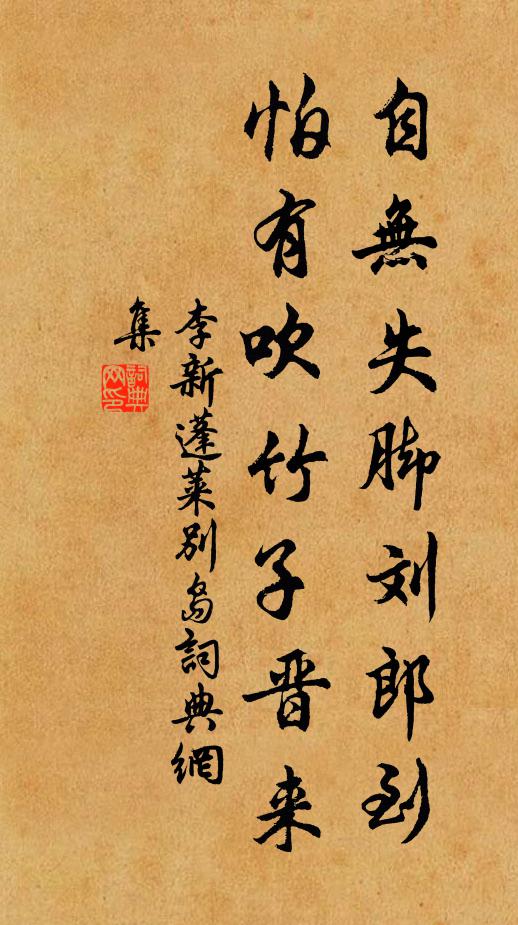 自無失脚刘郎到
怕有吹竹子晋来
李新蓬莱别岛詞典網
集
詞典
网印